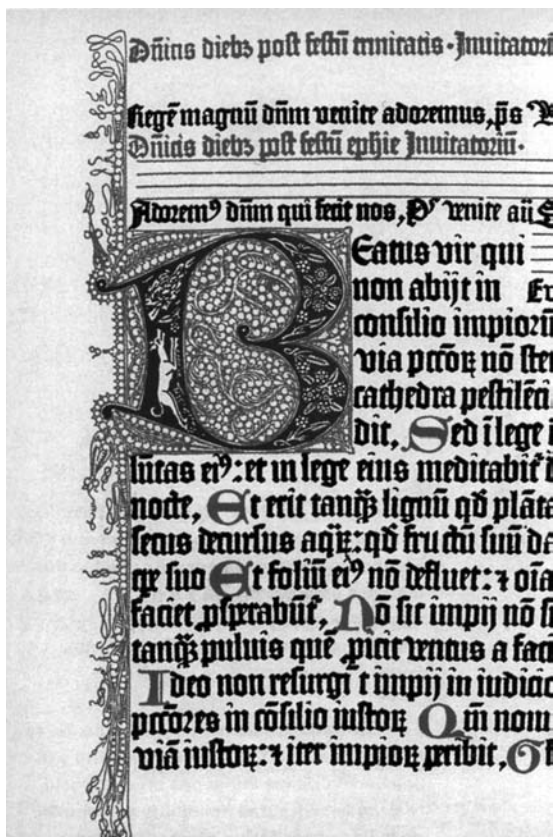 Dñicis diebꝫ post festū trinitatis · Inuitatoriū
Regē magnū dñm venite adoremus, p̄s
Dñicis diebꝫ post festū ephīe Inuitatoriū ·
Adoremꝰ dñm qui fecit nos, venite
Beatus vir qui
non abijt in
consilio impioꝝ
via pccōꝝ nō stet
cathedra pestilēci
dit, Sed ī lege
lūtas eiꝰ: et in lege eius meditabit̄
nocte, Et erit tanqꝫ lignū qd̄ plāta
secus decursus aqꝝ: qd̄ fructū suū da
suo Et foliū eiꝰ nō defluet: ⁊ oīa
faciet ꝓsꝑabūt̄, Nō sic impij nō
tanqꝫ puluis quē ꝓicit ventus a faci
Ideo non resurgūt impij in iudicio
pccōres in cōsilio iustoꝝ Qm̄ nouit
viā iustoꝝ: ⁊ iter impioꝝ ꝑibit,